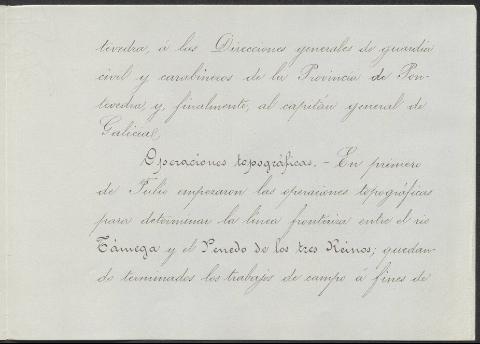 tevedra, á las Direcciones generales de guardia
civil y carabineros de la Provincia de Pon-
tevedra, y, finalmente, al capitán general de
Galicia.
Operaciones topográficas. – En primero
de Julio empezaron las operaciones topográficas
para determinar la línea fronteriza entre el río
Támega y el Penedo de los tres Reinos; quedan-
do terminados los trabajos de campo á fines de